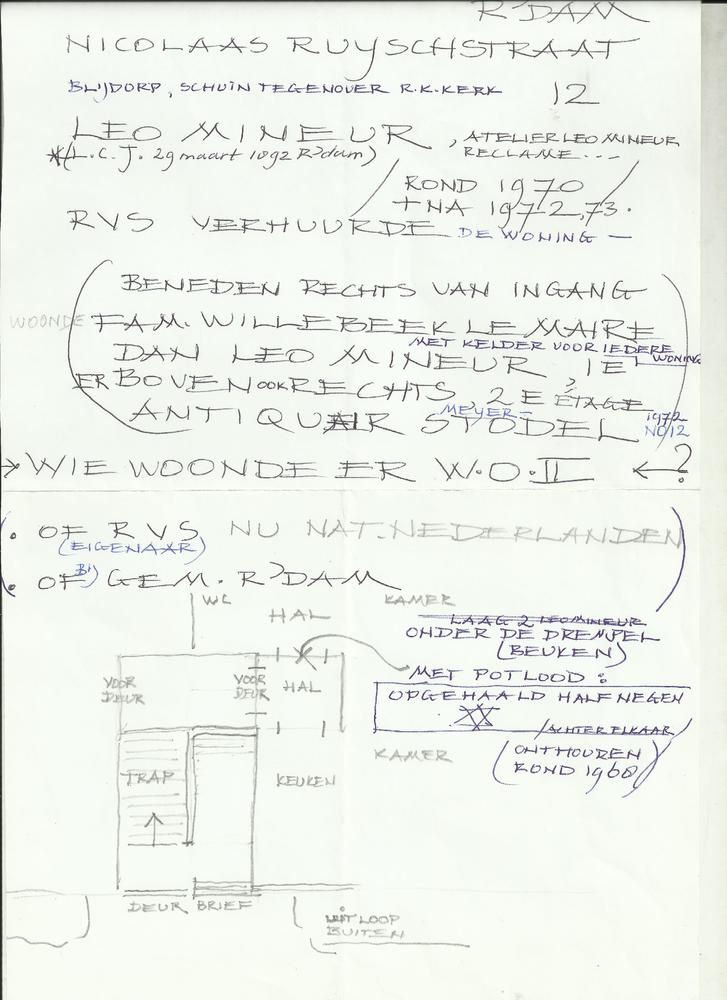 R'DAM
NICOLAAS RUYSCHSTRAAT
BLIJDORP, SCHUIN TEGENOVER R.K. KERK 12
LEO MINEUR, ATELIER LEO MINEUR
*(L.C.J. 29 maart 1892 R'dam) RECLAME...
ROND 1970
+ NA 1972,73.
RVS VERHUURDE DE WONING —
(BENEDEN RECHTS VAN INGANG
WOONDE FAM. WILLEBEEK LE MAIRE
MET KELDER VOOR IEDERE WONING
DAN LEO MINEUR, 1E
ER BOVEN OOK RECHTS, 2E ÉTAGE
MEYER- 1972
ANTIQUAIR STODEL NO 12
→ WIE WOONDE ER W.O.II ←?
(. OF RVS NU NAT. NEDERLANDEN)
(EIGENAAR)
(. OF BIJ GEM. R'DAM
WC
HAL
KAMER
LAAG 2 LEO MINEUR
ONDER DE DREMPEL
(BEUKEN)
MET POTLOOD:
VOOR DEUR
VOOR DEUR
HAL
OPGEHAALD HALF NEGEN
ACHTER ELKAAR
KAMER
(ONTHOUDEN
ROND 1968)
TRAP
KEUKEN
DEUR BRIEF
UITLOOP
BUITEN